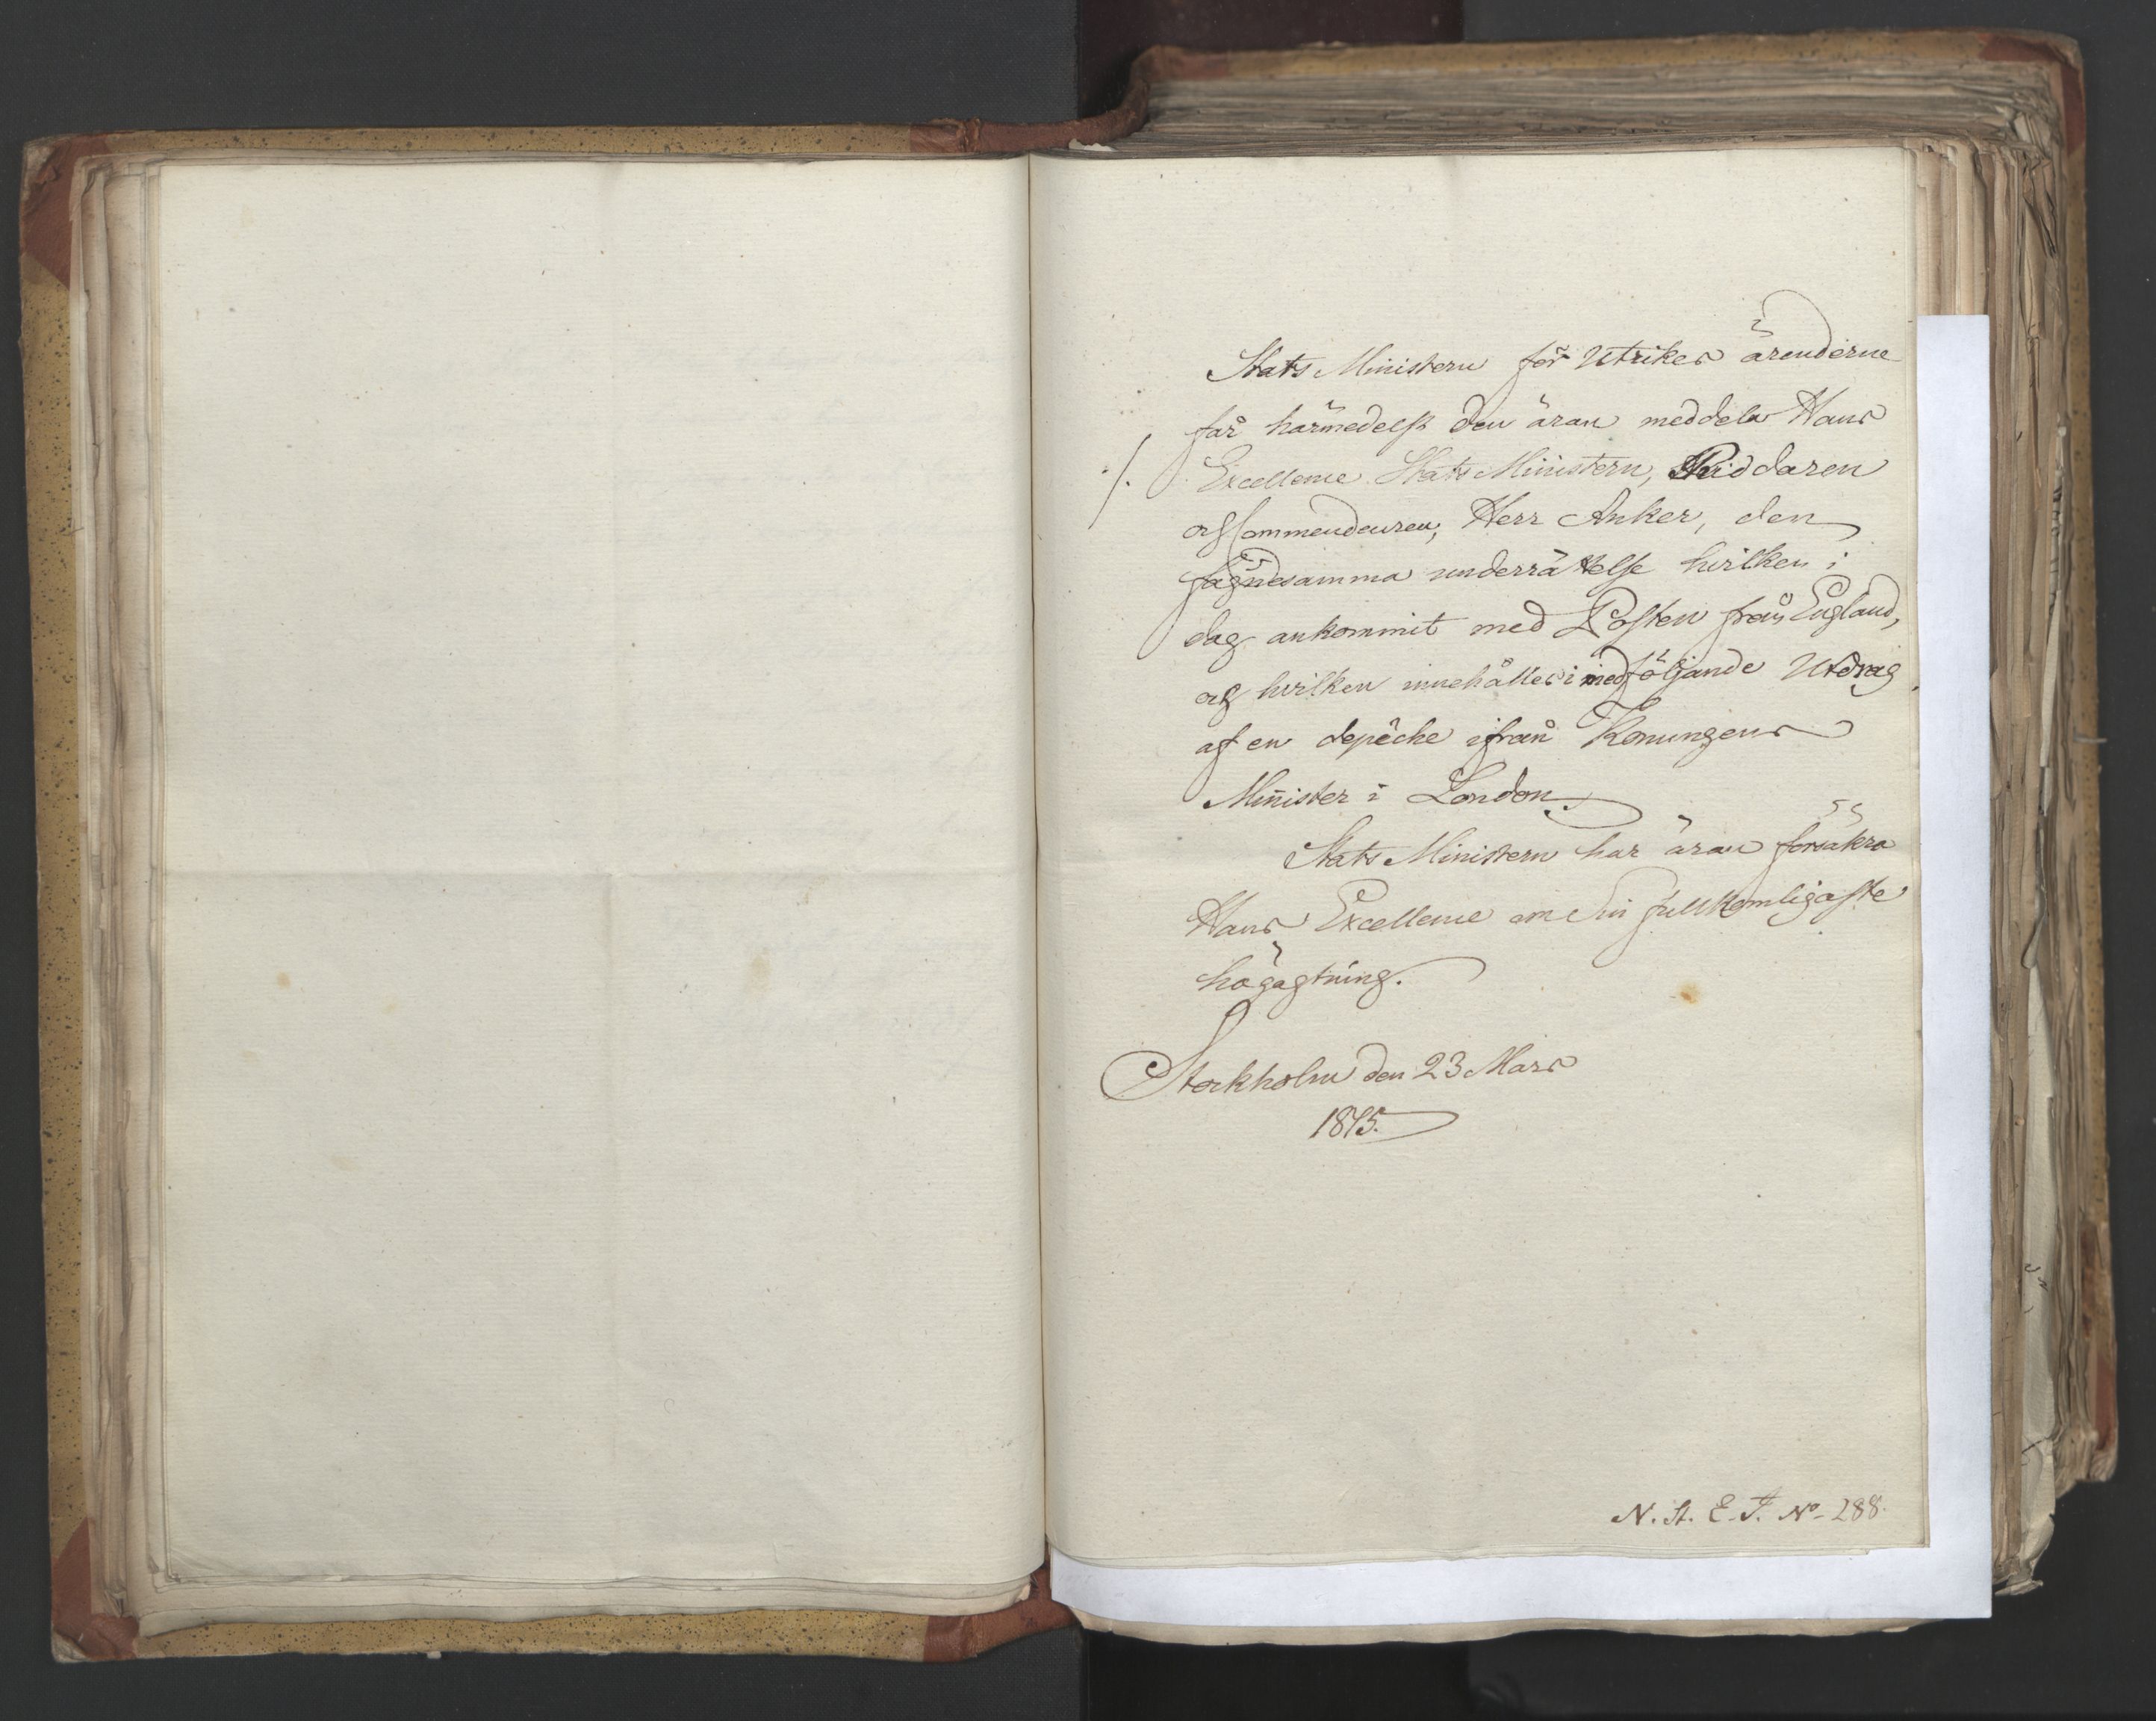 Stats Ministern för Utrikes ärenderne
får härmedelst den äran meddela Hans
./. Excellence Stats Ministern, Riddaren
och Commendeuren, Herr Anker, den
fägnesamma underrättelse hvilken i
dag ankommit med Posten från England,
och hvilken innehålles i medföljande Utdrag
af en depêche ifrån Konungens
Minister i London.
Stats Ministern har äran försäkra
Hans Excellence om Sin fullkomligaste
högagtning.
Stockholm den 23 Mars
1815.
N. St. E. T. No 288.